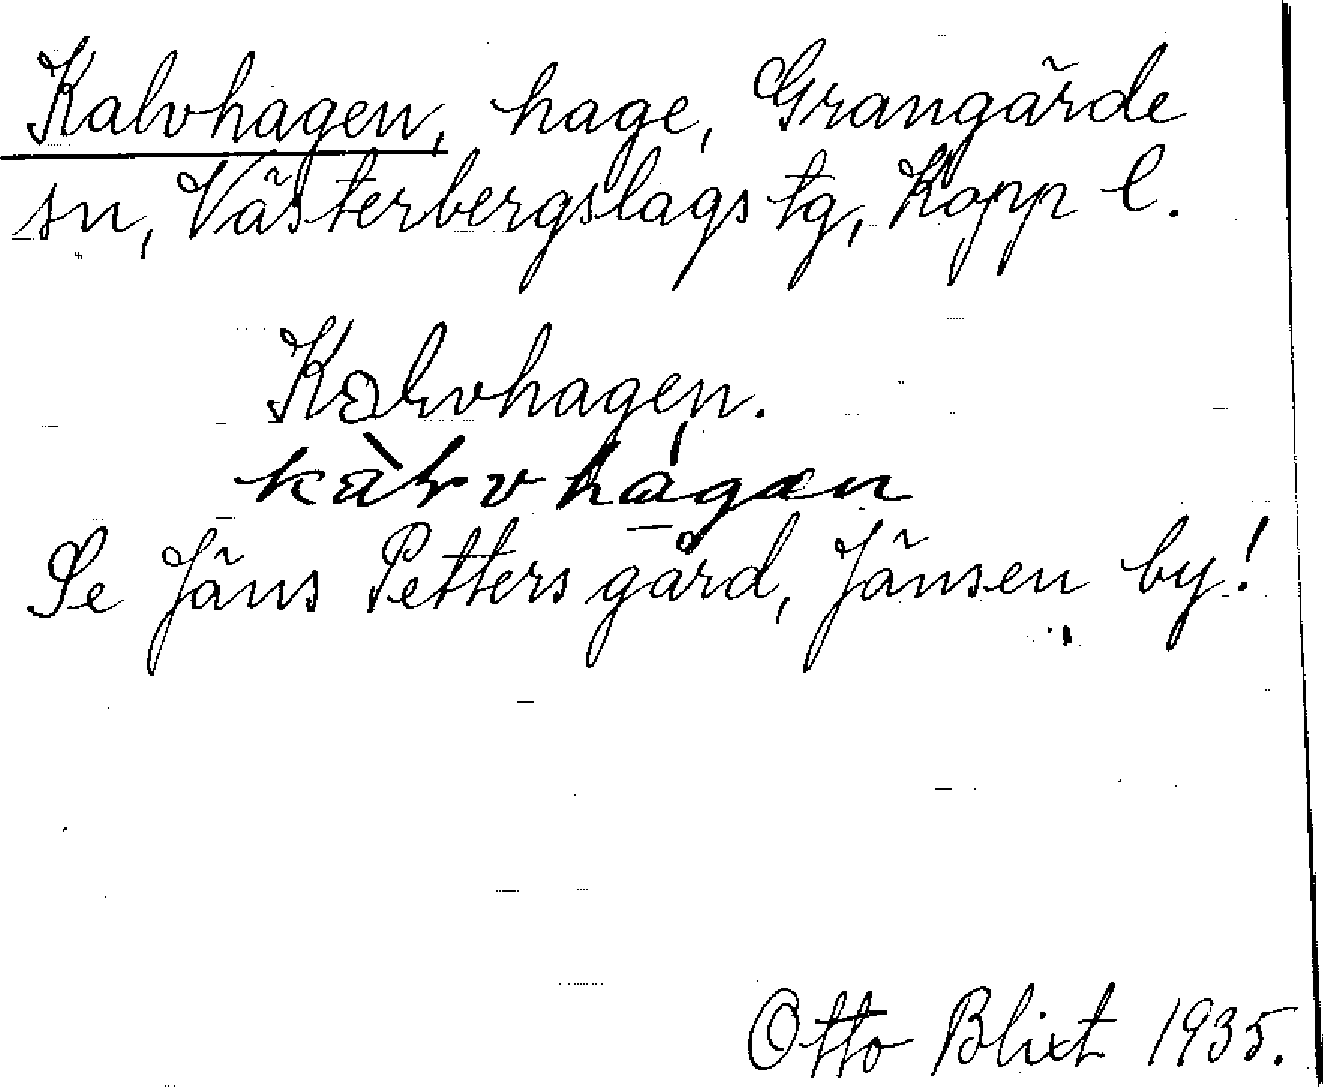 Kalvhagen, hage, Grangärde
sn, Västerbergslags tg, Kopp l.
Kalvhagen.
kàlvhágæn
Se Jäns Petters gård, Jänsen by!
Otto Blixt 1935.